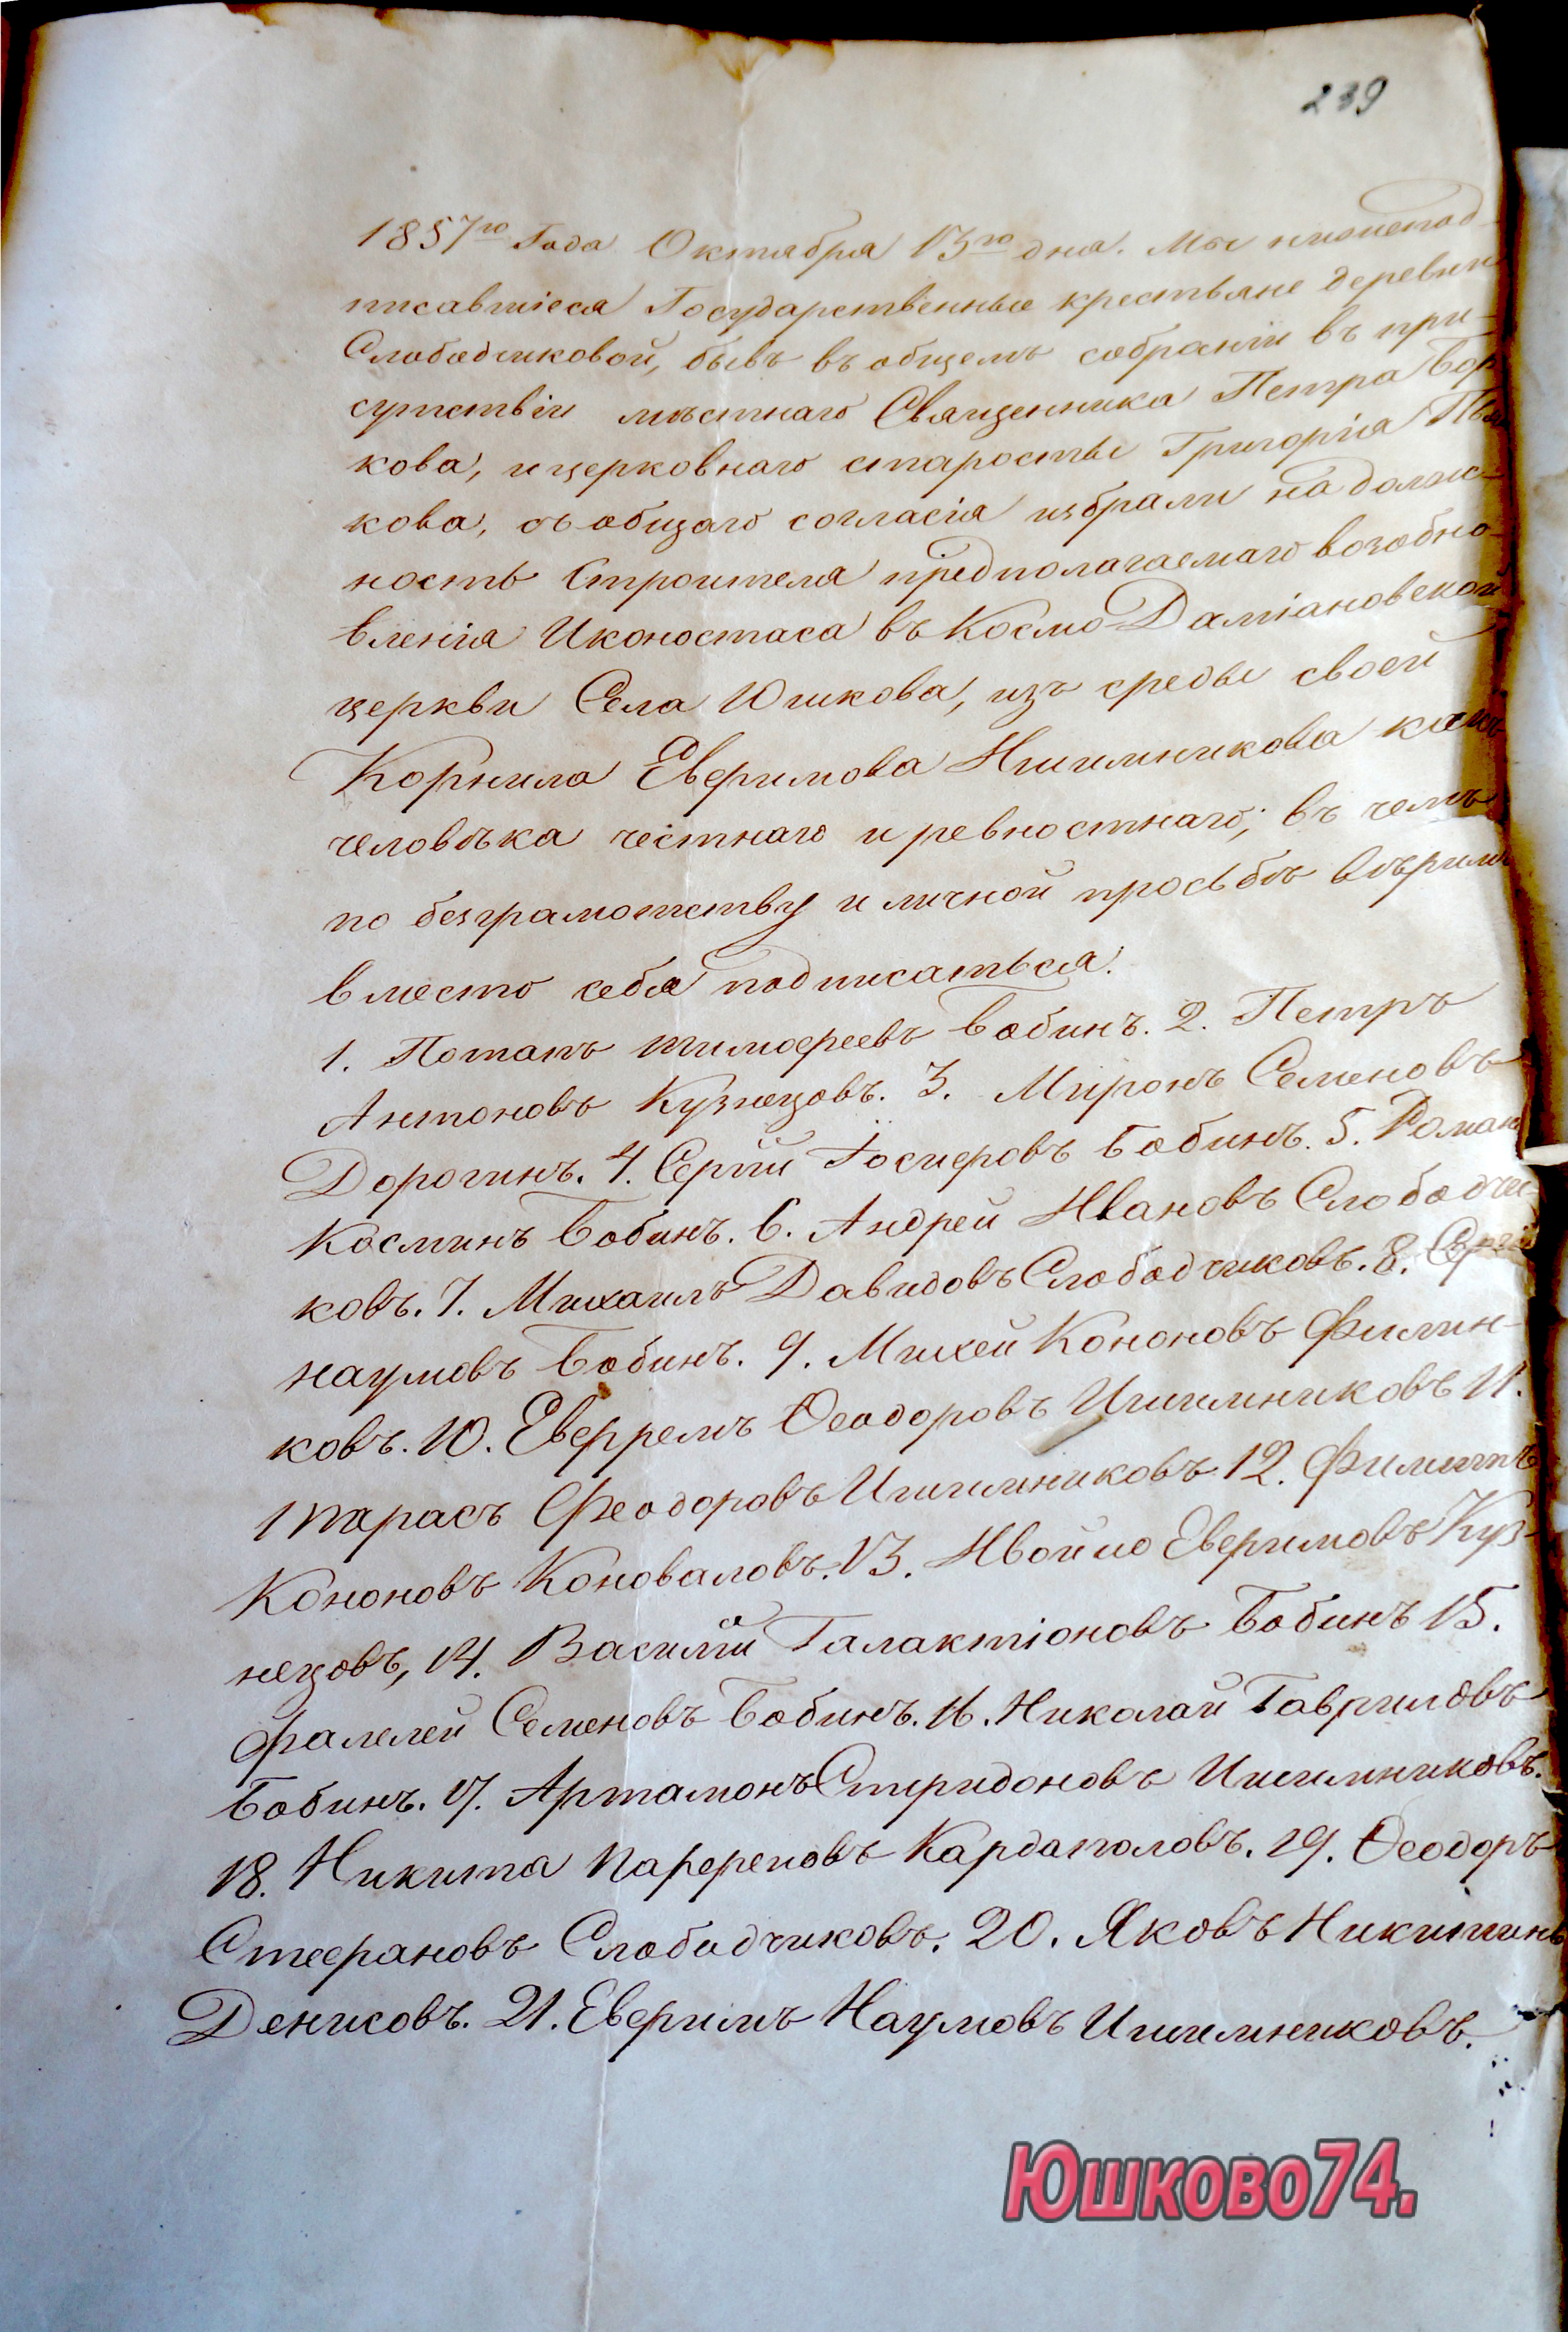 239
1857го Года Октября 13го дня. Мы нижепод-
писавшіеся Государственные крестьяне деревни
Слободчиковой, бывъ въ общемъ собраніи въ при-
сутствіи мѣстнаго Священника Петра
кова, и церковнаго старосты Григорія
кова, съ общаго согласія избрали на долж-
ность Строителя предполагаемаго возобно-
вленія Иконостаса въ Космо-Даміановской
церкви Села Юшкова, изъ среды своей
Корнила Евфимова Ишимникова какъ
человѣка честнаго и ревностнаго; въ чемъ
по безграмотству и личной просьбѣ вѣрили
вместо себя подписаться.
1. Потапъ тимофеевъ Бобинъ. 2. Петръ
Антоновъ Кузнецовъ. 3. Миронъ Семеновъ
Дорогинъ. 4. Сергій Іосифовъ Бобинъ. 5. Романъ
Косминъ Бобинъ. 6. Андрей Ивановъ Слободчи-
ковъ. 7. Михаилъ Давидовъ Слободчиковъ. 8. Сергій
наумовъ Бобинъ. 9. Михей Кононовъ Филин-
ковъ. 10. Евфремъ Ѳеодоровъ Ишимниковъ 11.
тарасъ Феодоровъ Ишимниковъ. 12. Филиппъ
Кононовъ Коноваловъ. 13. Ивойло Евфимовъ Куз-
нецовъ, 14. Василій Галактіоновъ Бобинъ 15.
фалелей Семеновъ Бобинъ. 16. Николай Гавриловъ
Бобинъ. 17. Артамонъ Спиридоновъ Ишимниковъ.
18. Никита Парфеновъ Кардаполовъ. 19. Ѳеодоръ
Стефановъ Слободчиковъ. 20. Яковъ Никитинъ
Денисовъ. 21. Евфимъ Наумовъ Ишимниковъ.
Юшково74.